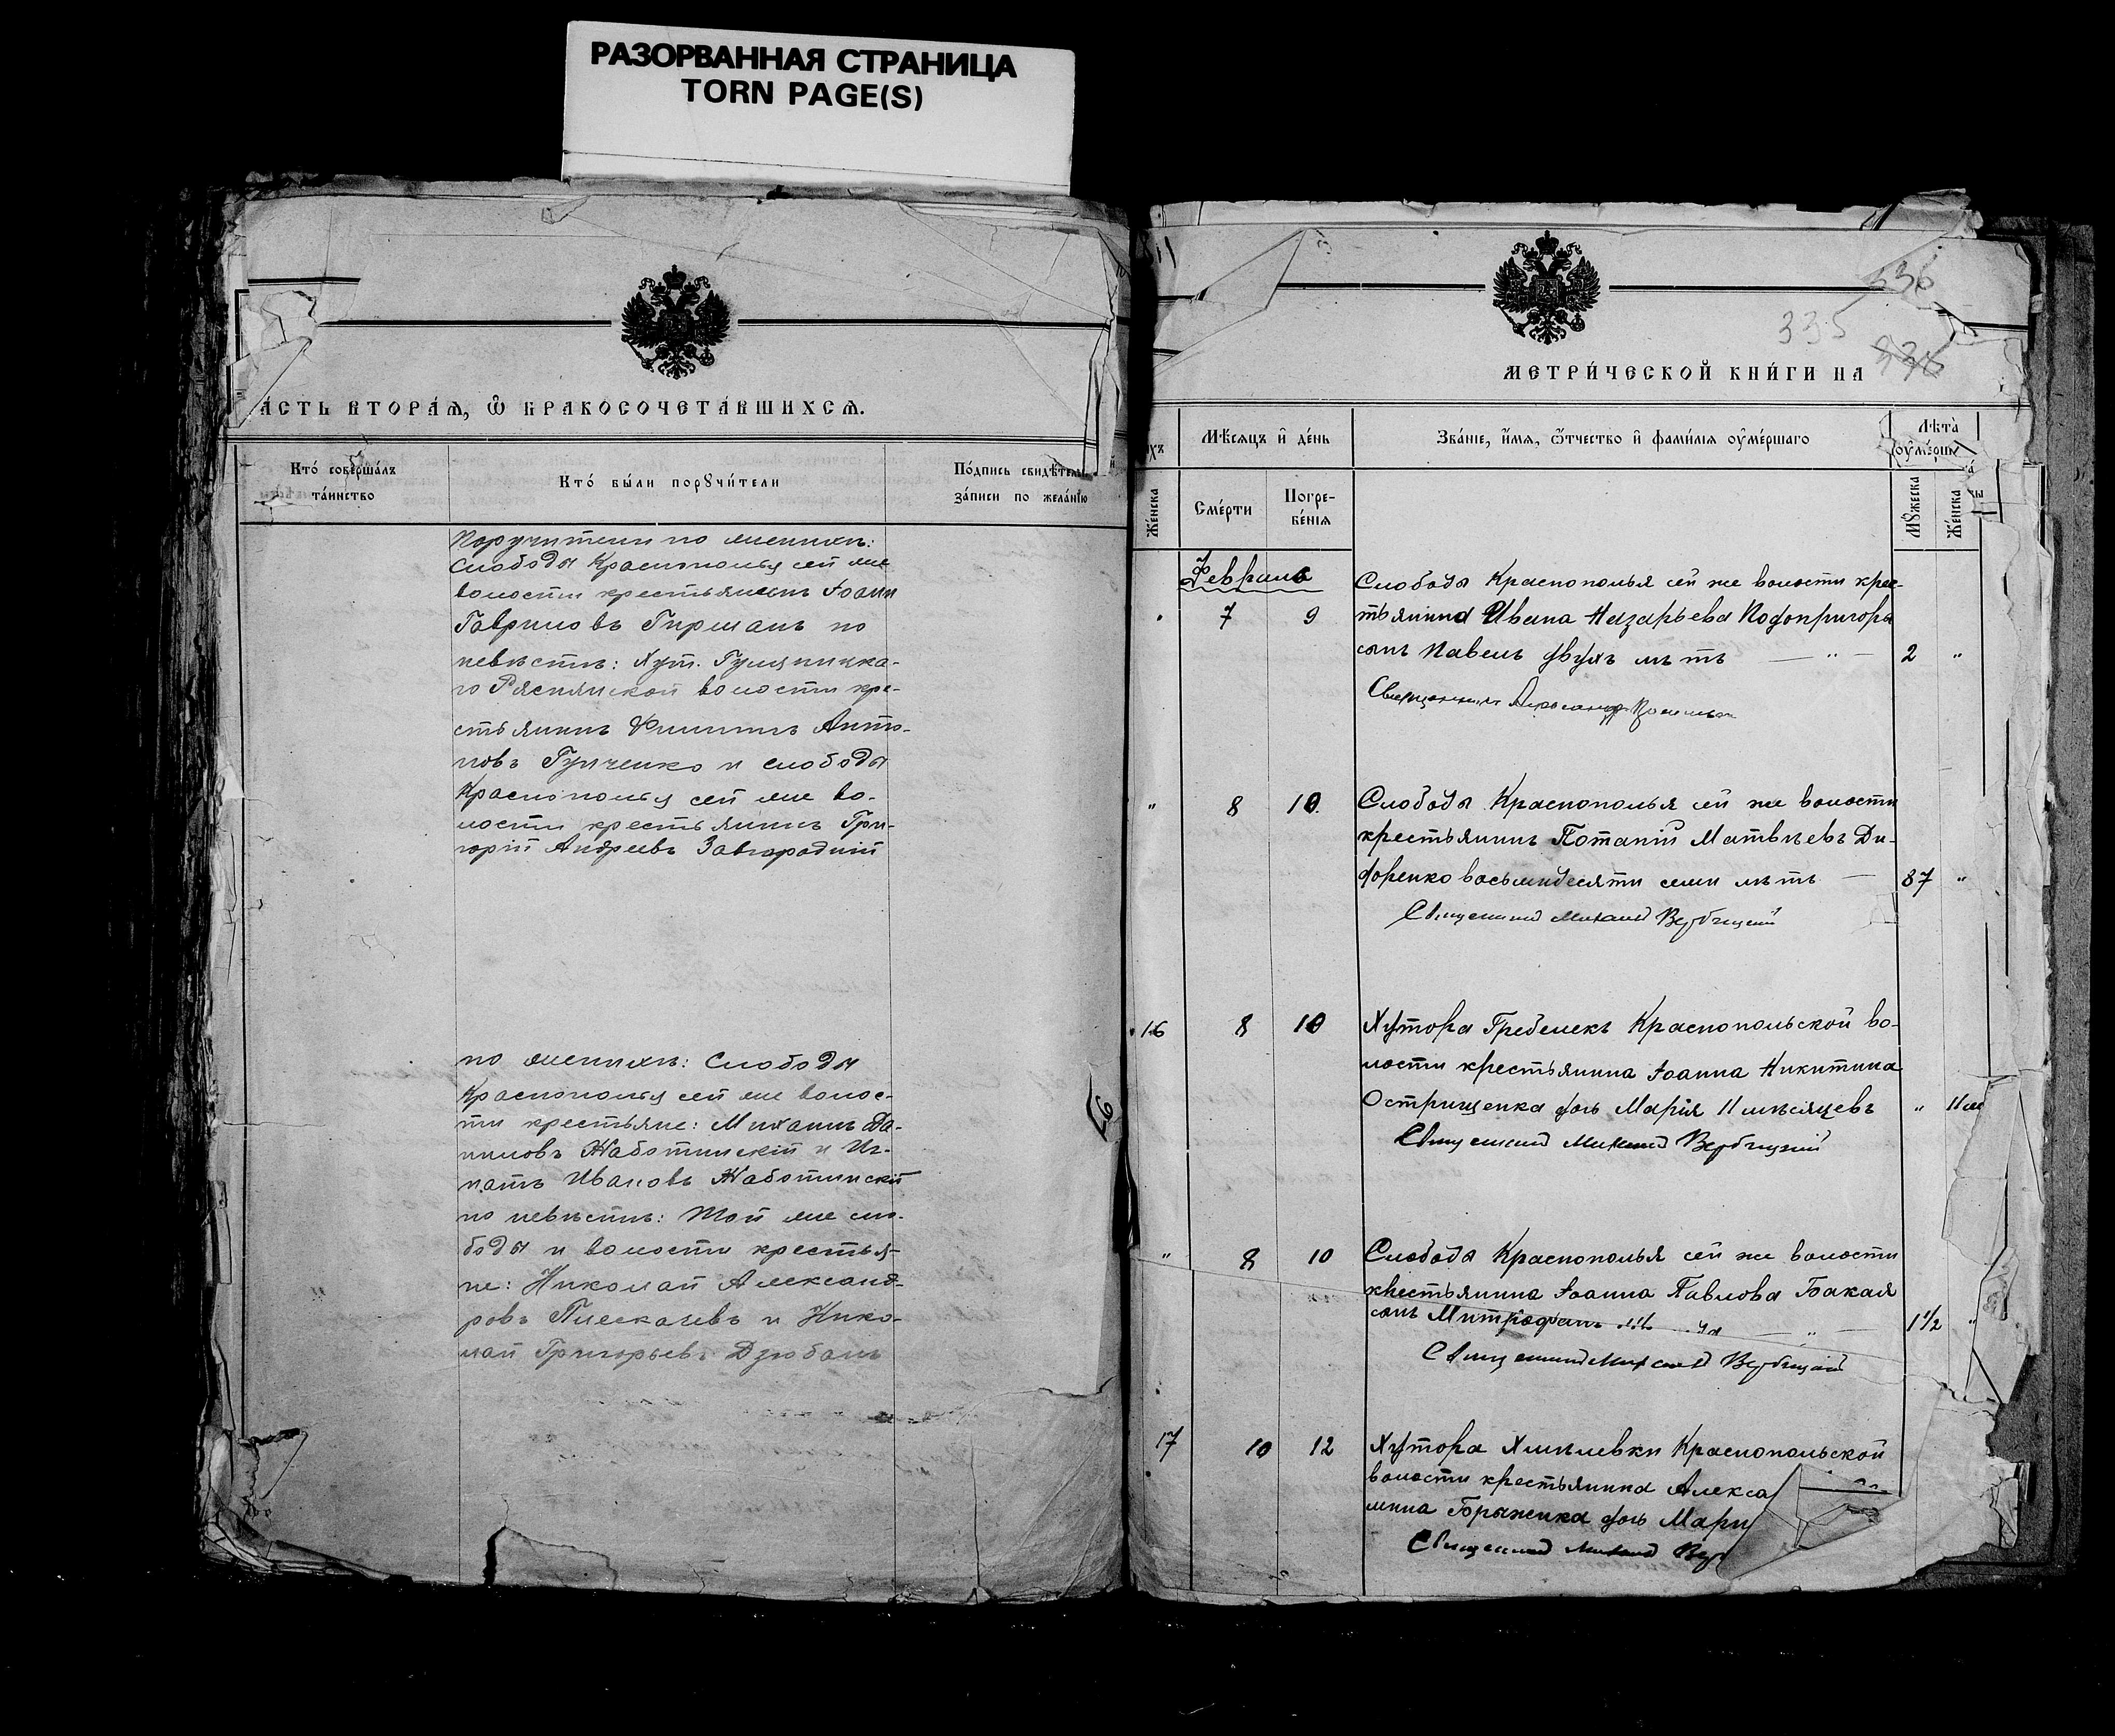 РАЗОРВАННАЯ СТРАНИЦА
TORN PAGE(S)
А́СТЬ ВТОРА́Я, Ѽ БРАКОСОЧЕТА́ВШИХСЯ.
Кто́ соверша́лъ
та́инство
Кто́ бы́ли порꙋчи́тели
По́дпись свидѣтел
за́писи по жела́нїю
Поручители по женихѣ:
Слободы Краснополья сей же
волости крестьянинъ Іоаннъ
Гавриловъ Гирманъ по
невѣстѣ: Хут.
го Ряснянской волости кре-
стьянинъ Филиппъ Анто-
новъ Гунченко и слободы
Краснополья сей же во-
лости крестьянинъ Гри-
горій Андреевъ Завгородній
по женихѣ: Слободы
Краснополья сей же волос-
ти крестьяне: Михаилъ Да-
ниловъ Жаботинскій и Иг-
натъ Ивановъ Жаботинскій
по невѣстѣ: Той же сло-
боды и волости крестья-
не: Николай Александ-
ровъ Плескачевъ и Нико-
лай Григорьевъ Дзюбанъ
336
335
336
МЕТРИ́ЧЕСКОЙ КНИ́ГИ НА
ихъ
Мѣ́сяцъ и҆ де́нь
Зва́нїе, и҆́мя, ѻ҆́тчество и҆ фами́лїя оу҆ме́ршаго
Лѣта̀
оу҆ме́рш
Же́нска
Сме́рти
Погре-
бе́нїя
Мꙋ́жеска
Же́нска
Февраль
Слободы Краснополья сей же волости крес-
7 9 тьянина Ивана Назарьева Подопригоры
сынъ Павелъ двухъ лѣтъ — " — 2 "
Священникъ Александръ
" 8 10 Слободы Краснополья сей же волости
крестьянинъ Потапій Матвѣевъ Ди-
форенко восьмидесяти семи лѣтъ — 87 "
Священникъ Михаилъ Вербицкій
16 8 10 Хутора Гребелекъ Краснопольской во-
лости крестьянина Іоанна Никитина
Острищенка дочь Марія 11 мѣсяцевъ " 11 м
Священникъ Михаилъ Вербицкій
" 8 10 Слободы Краснополья сей же волости
крестьянина Іоанна Павлова Бакая
сынъ Митрофанъ — " — 1 1/2 "
Священникъ Михаилъ Вербицкій
17 10 12 Хутора Хмѣлевки Краснопольской
волости крестьянина Алекса
мина Брыженка дочь Мари
Священникъ Михаилъ Вер